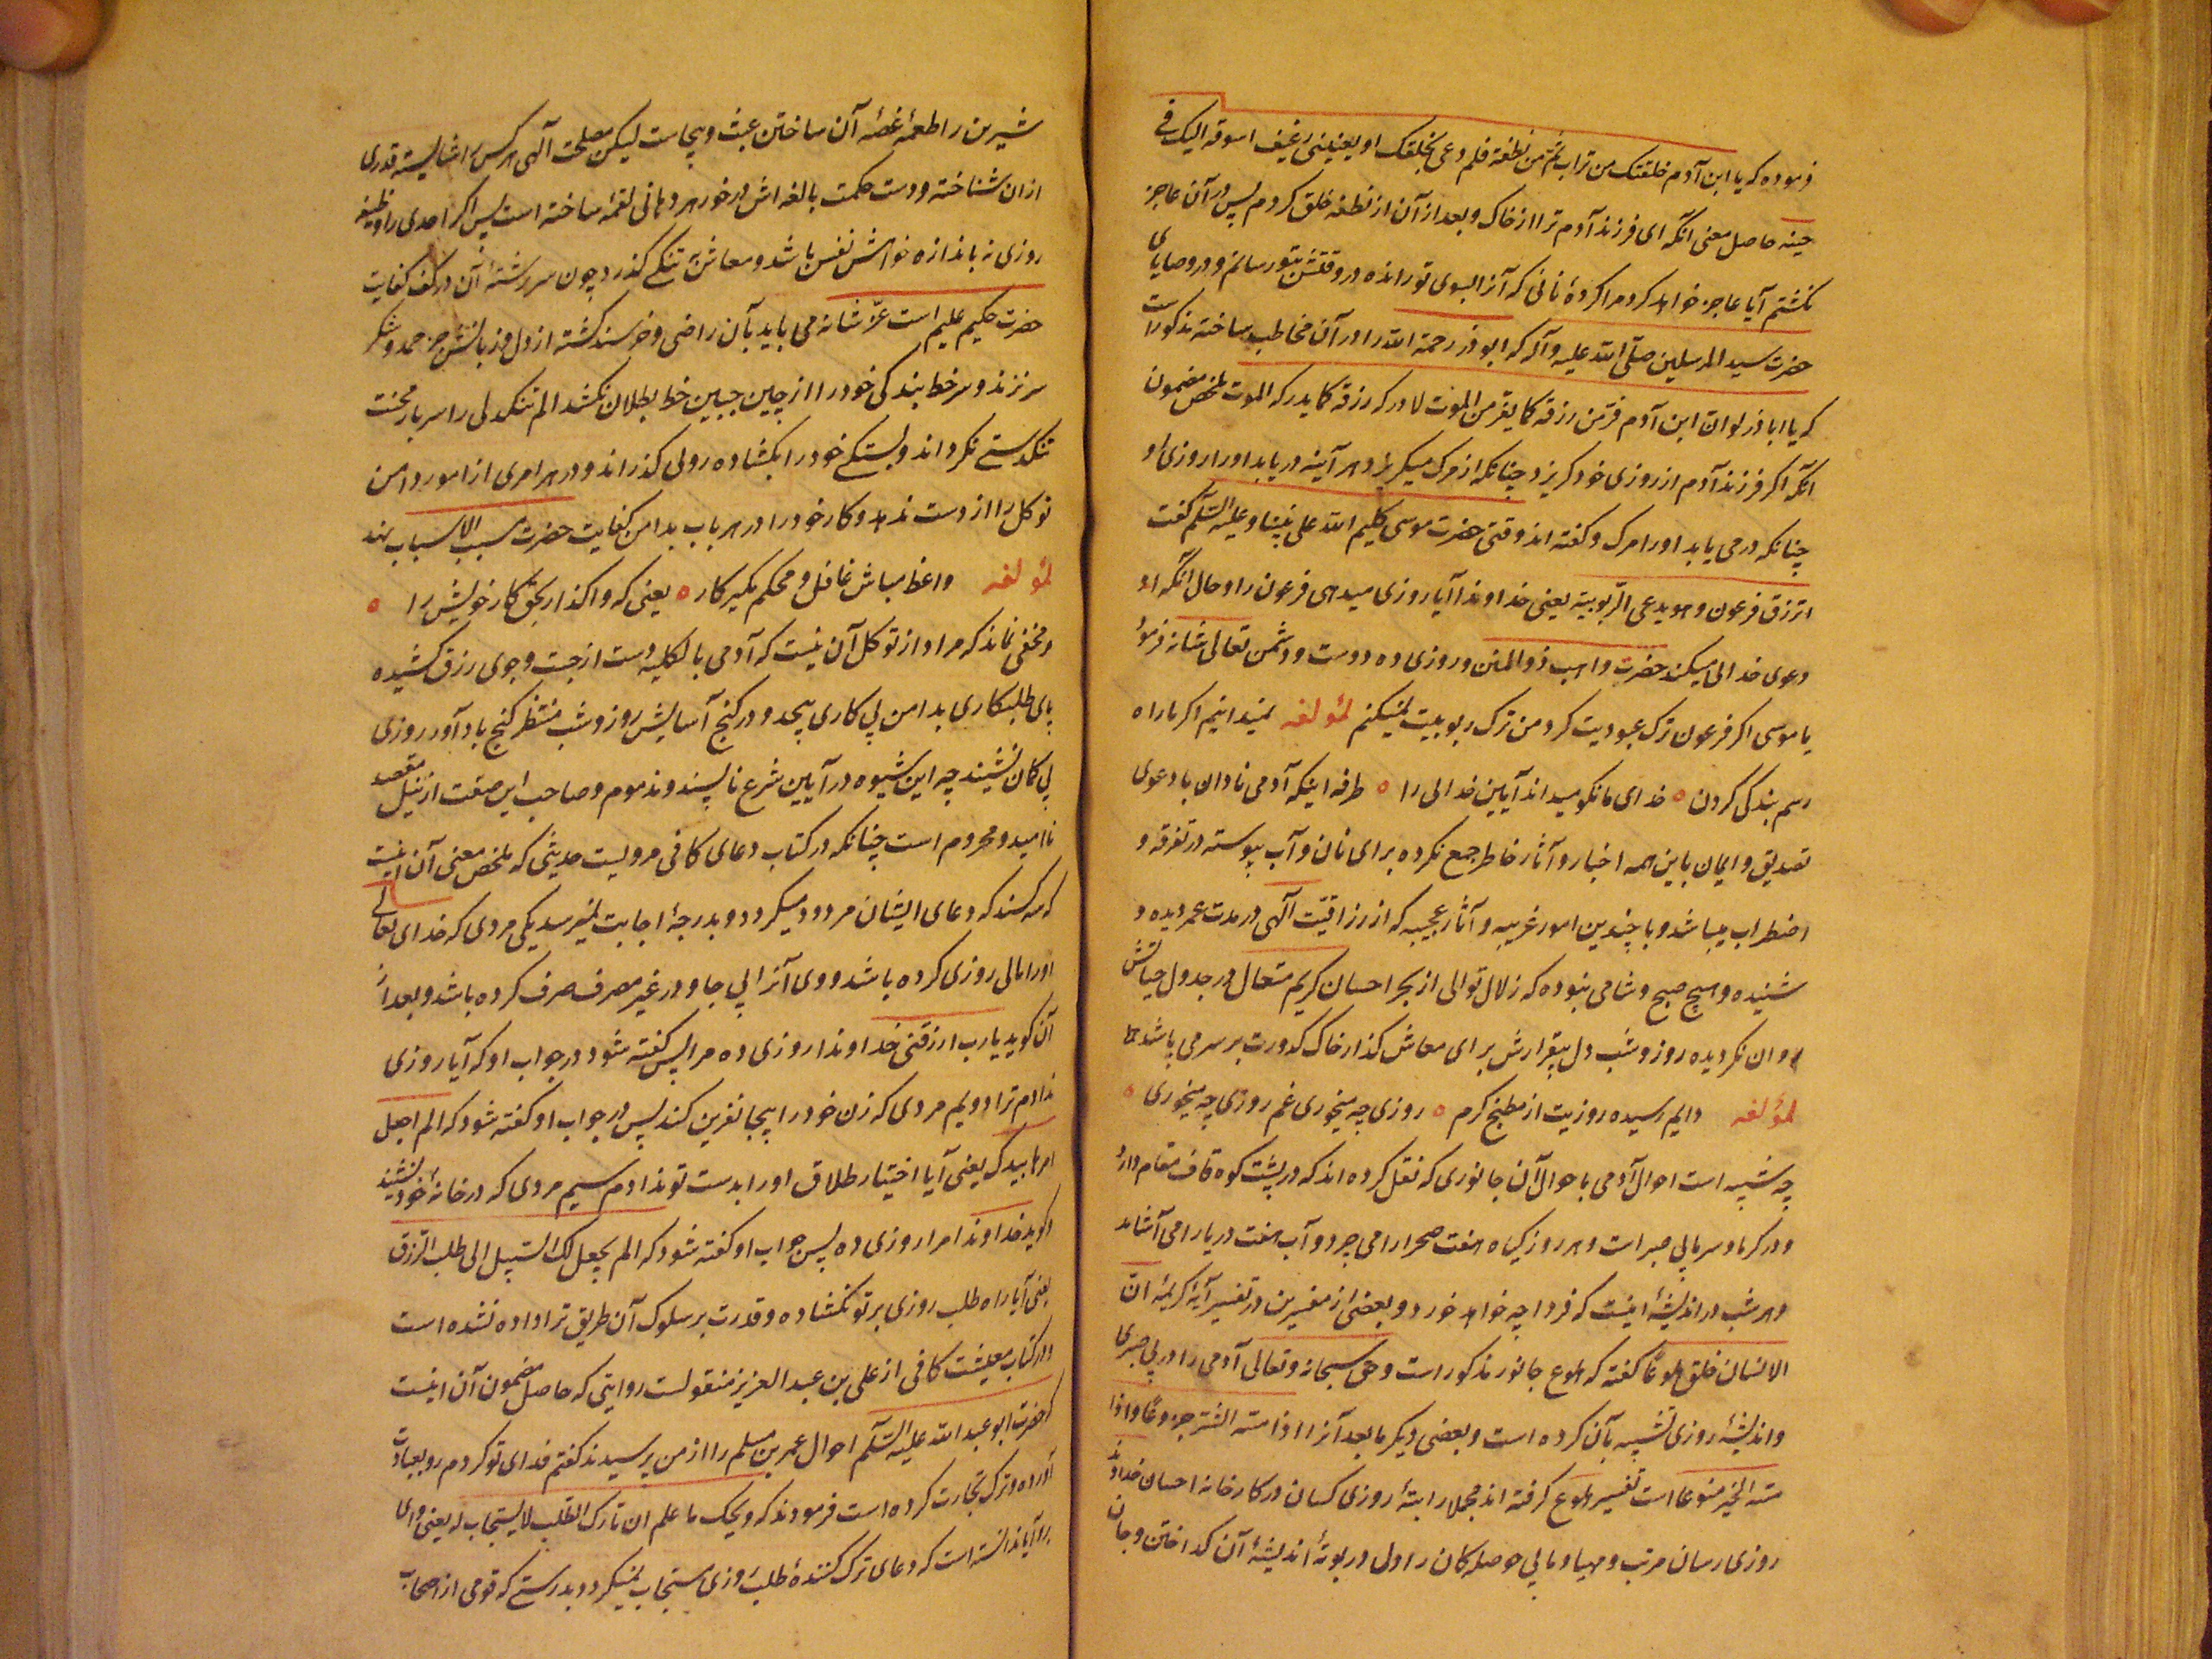 فرموده که یا ابن آدم خلقتک من تراب ثم من نطفة فلم دعی بخلقک او یعیینی رغیف اسوقه الیک فی
حینه حاصل معنی آنکه ای فرزند آدم ترا از خاک و بعد از آن از نطفه خلق کردم پس در آن عاجز
نکشتم آیا عاجز خواهد کرد مرا کردهٔ نانی که آنرا بسوی تو رانده در وقتش بتو رسانم و در وصایای
حضرت سید المرسلین صلّی الله علیه و آله که ابوذر رحمة الله را در آن مخاطب ساخته مذکور است
که یا اباذر لو ان ابن آدم فرّ من رزقه کما یفرّ من الموت لادرکه رزقه کما یدرکه الموت ملخص مضمون
آنکه اکر فرزند آدم از روزی خود کریزد چنانکه از مرک میکریزد هر آینه دریابد او را روزی او
چنانکه درمی یابد او را مرک و کفته اند وقتی حضرت موسی کلیم الله علی نبینا و علیه السّلم کفت
اترزق فرعون و هو یدعی الرّبوبیة یعنی خداوندا آیا روزی میدهی فرعون را و حال آنکه او
دعوی خدایی میکند حضرت واهب ذوالمنن و روزی ده دوست و دشمن تعالی شانه فرمود
یا موسی اکر فرعون ترک عبودیت کرد من ترک ربوبیت نمیکنم لمؤلفه نمیدانیم اکر ما راه
رسم بندکی کردن ٥ خدای ما نکو میداند آیین خدایی را ٥ طرفه اینکه آدمی نادان با دعوی
تصدیق و ایمان باین همه اخبار و آثار خاطر جمع نکرده برای نان و آب پیوسته در تفرقه و
اضطراب میباشد و با چندین امور غریبه و آثار عجیبه که از رزاقیّت آلهی در مدت عمر دیده و
شنیده و هیچ صبح و شامی نبوده که زلال توالی از بحر احسان کریم متعال در جدول حیاتش
روان نکردیده روز و شب دل بیقرارش برای معاش کذار خاک کدورت بر سر می پاشد
لمؤلفه دایم رسیده روزیت از مطبخ کرم ٥ روزی چه میخوری غم روزی چه میخوری ٥
چه شبیه است احوال آدمی باحوال آن جانوری که نقل کرده اند که در پشت کوه قاف مقام دارد
و در کرما و سرما بی صبر است و هر روز کیاه هفت صحرا را می چرد و آب هفت دریا را می آشامد
و هر شب در اندیشهٔ اینست که فردا چه خواهد خورد و بعضی از مفسرین در تفسیر آیهٔ کریمهٔ انّ
الانسان خلق هلوعًا کفته که هلوع جانور مذکور است و حق سبحانه و تعالی آدمی را در بی صبری
و اندیشهٔ روزی تشبیه بآن کرده است و بعضی دیکر ما بعد آنرا اذا مسّه الشّر جزوعًا و اذا
مسّه الخیر منوعا است تفسیر هلوع کرفته اند مجملا راتبهٔ روزی کسان در کارخانه احسان خداوند
روزی رسان مرتب و مهیا و ما بی حوصلکان را دل در بوتهٔ اندیشهٔ آن کداختن و جان
شیرین را طعمهٔ غصّهٔ آن ساختن عبث و بیجاست لیکن مصلحت آلهی هر کس را شایسته قدری
از ان شناخته و دست حکمت بالغه اش در خور هر دهانی لقمهٔ ساخته است پس اکر احدی را وظیفه
روزی نه باندازه خواهش نفس باشد و معاشش به تنکی کذرد چون سررشتهٔ آن در کف کفایت
حضرت حکیم علیم است عزّ شانه می باید بآن راضی و خرسند کشته از دل و زبانش جز حمد و شکر
سر نزند و سر خط بندکی خود را از چین جبین خط بطلان نکشد الم تنکدلی را سربار محنت
تنکدستی نکرداند و بستکی خود را بکشاده رویی کذراند و در هر امری از امور دامن
توکل را از دست ندهد و کار خود را در هر باب بدامن کفایت حضرت مسبب الاسباب بندد
لمؤلفه واعظ مباش غافل و محکم بکیر کار ٥ یعنی که واکذار بحق کار خویش را ٥
و مخفی نماند که مراد از توکل آن نیست که آدمی بالکلیه دست از جست وجوی رزق کشیده
پای طلبکاری بدامن بی کاری پیچد و در کنج آسایش روز و شب منتظر کنج باد آور روزی
بی کان نشیند چه این شیوه در آیین شرع ناپسند و مذموم و صاحب این صفت از نیل مقصد
ناامید و محروم است چنانکه در کتاب دعای کافی مرویست حدیثی که ملخص معنی آن اینست
که سه کسند که دعای ایشان مردود میکردد و بدرجهٔ اجابت نمیرسد یکی مردی که خدای تعالی
او را مالی روزی کرده باشد و وی آنرا بی جا و در غیر مصرف صرف کرده باشد و بعد از
آن کوید یا رب ارزقنی خداوندا روزی ده مرا پس کفته شود در جواب او که آیا روزی
ندادم ترا دویم مردی که زن خود را بیجا نفرین کند پس در جواب او کفته شود که الم اجعل
امرها بیدک یعنی آیا اختیار طلاق او را بدست تو ندادم سیم مردی که در خانهٔ خود نشیند
و کوید خداوندا مرا روزی ده پس جواب او کفته شود که الم یجعل لک السّبیل الی طلب الرّزق
یعنی آیا راه طلب روزی بر تو نکشاده و قدرت بر سلوک آن طریق ترا داده نشده است
و در کتاب معیشت کافی از علی بن عبد العزیز منقولست روایتی که حاصل مضمون آن اینست
که حضرت ابو عبد الله علیه السّلم احوال عمر بن مسلم را از من پرسیدند کفتم فدای تو کردم رو بعبادت
آورده و ترک تجارت کرده است فرمودند که ویحک ما علم ان تارک الطّلب لا یستجاب له یعنی وای
برا و آیا ندانسته است که دعای ترک کنندهٔ طلب روزی مستجاب نمیکردد بدرستی که قومی از اصحاب